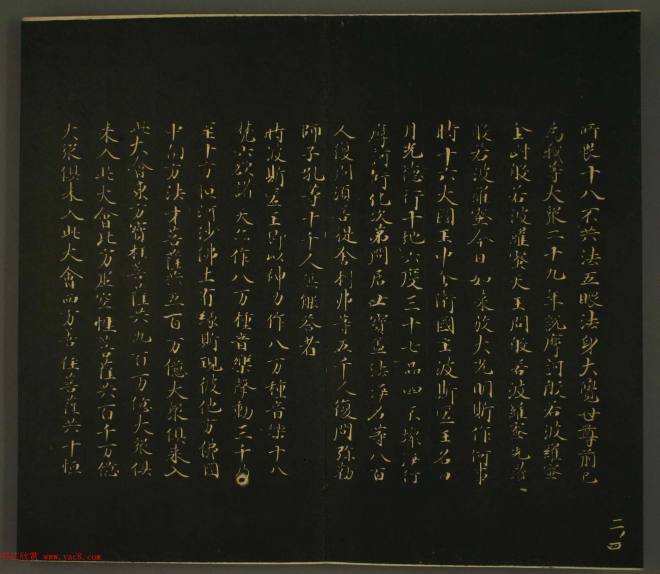 所畏十八不共法五眼法身大覺世尊前已
為我等大眾二十九年說摩訶般若波羅蜜
金剛般若波羅蜜天王問般若波羅蜜光讚
般若波羅蜜今日如來放大光明斯作何事
時十六大國王中舍衛國主波斯匿王名曰
月光德行十地六度三十七品四不壞淨行
摩訶衍化次第問居士寶蓋法淨名等八百
人復問須菩提舍利弗等五千人復問彌勒
師子吼等十千人無能答者
時波斯匿王即以神力作八万種音樂十八
梵六欲諸天亦作八万種音樂聲動三千乃
至十方恒河沙佛土有緣斯現彼他方佛國
中南方法才菩薩共五百万億大眾俱來入
此大會東方寶柱菩薩共九百万億大眾俱
來入此大會北方虛空性菩薩共百千万億
大眾俱來入此大會西方善住菩薩共十恒
二、四
www.yac8.com